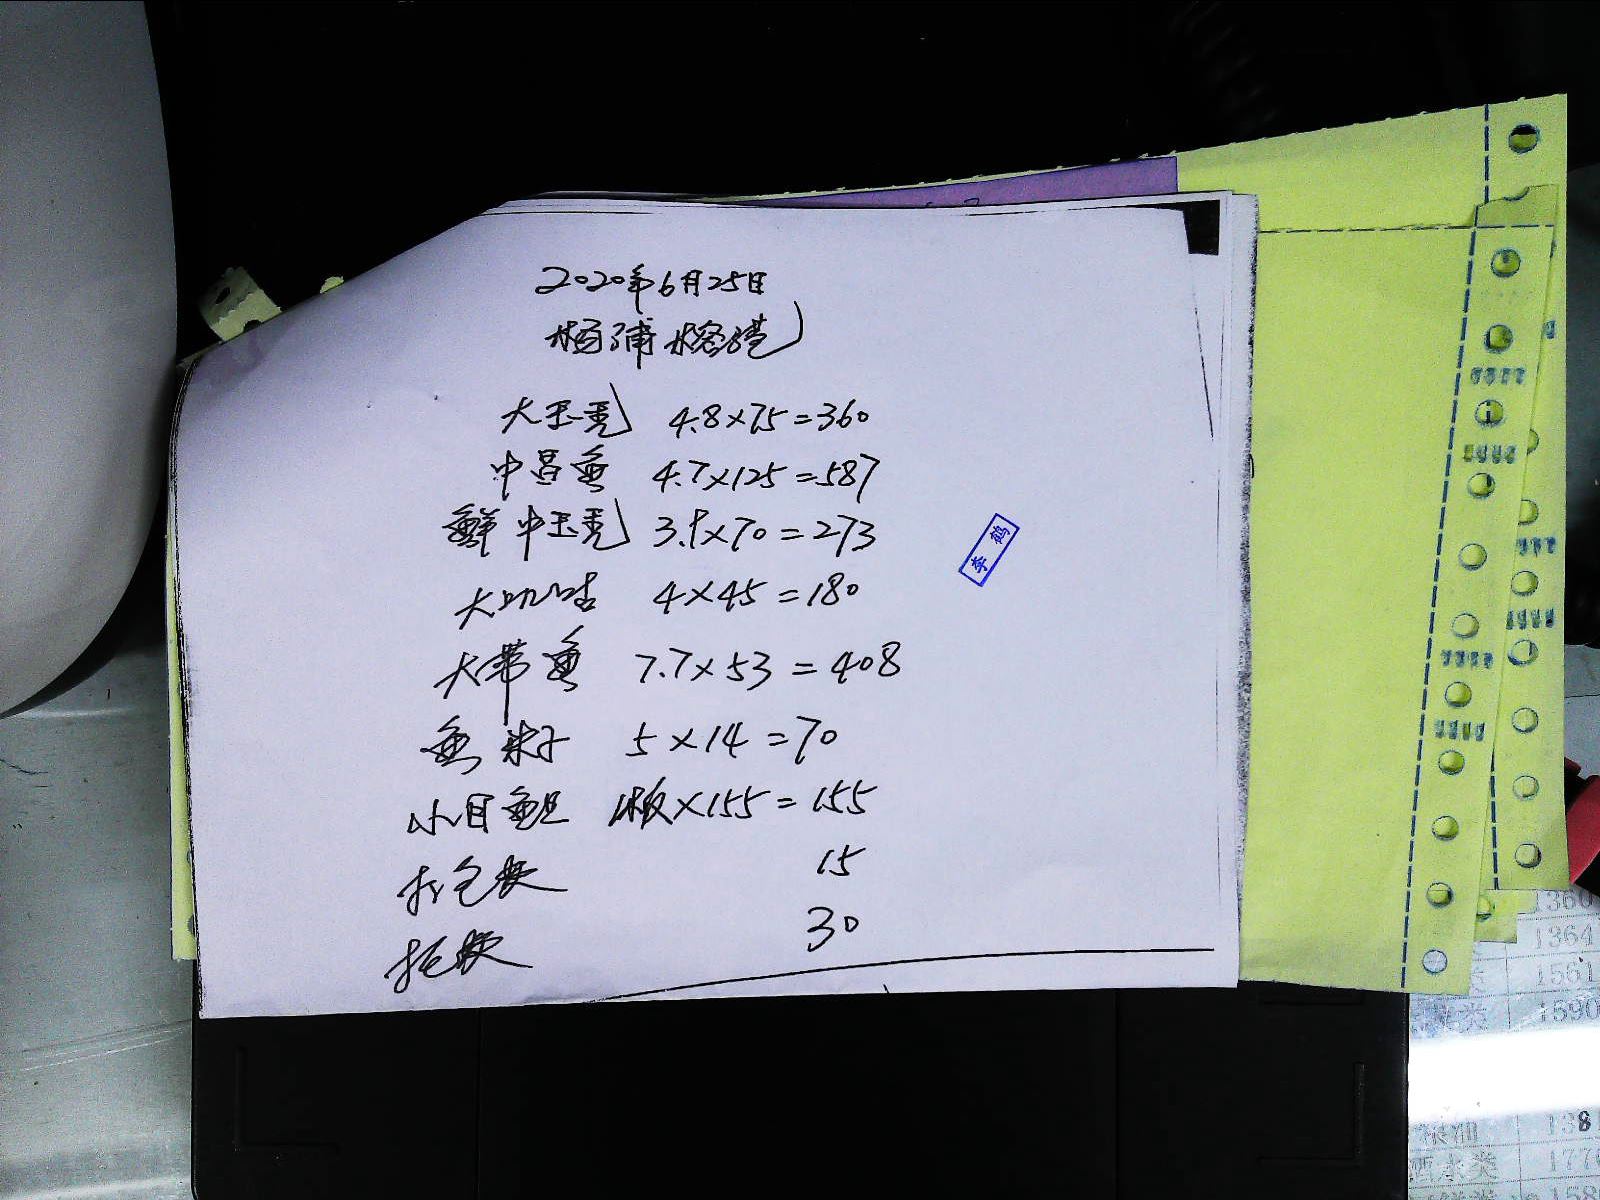 2020年6月25日
杨浦榕港
大玉秃 4.8×75=360
中昌鱼 4.7×125=587
鲜中玉秃 3.9×70=273
大巩咕 4×45=180
大带鱼 7.7×53=408
鱼籽 5×14=70
小目鱼旦 1板×155=155
打包费 15
托费 30
李鹤
1360
1364
1561
类 1590
1381
酒水类 1770